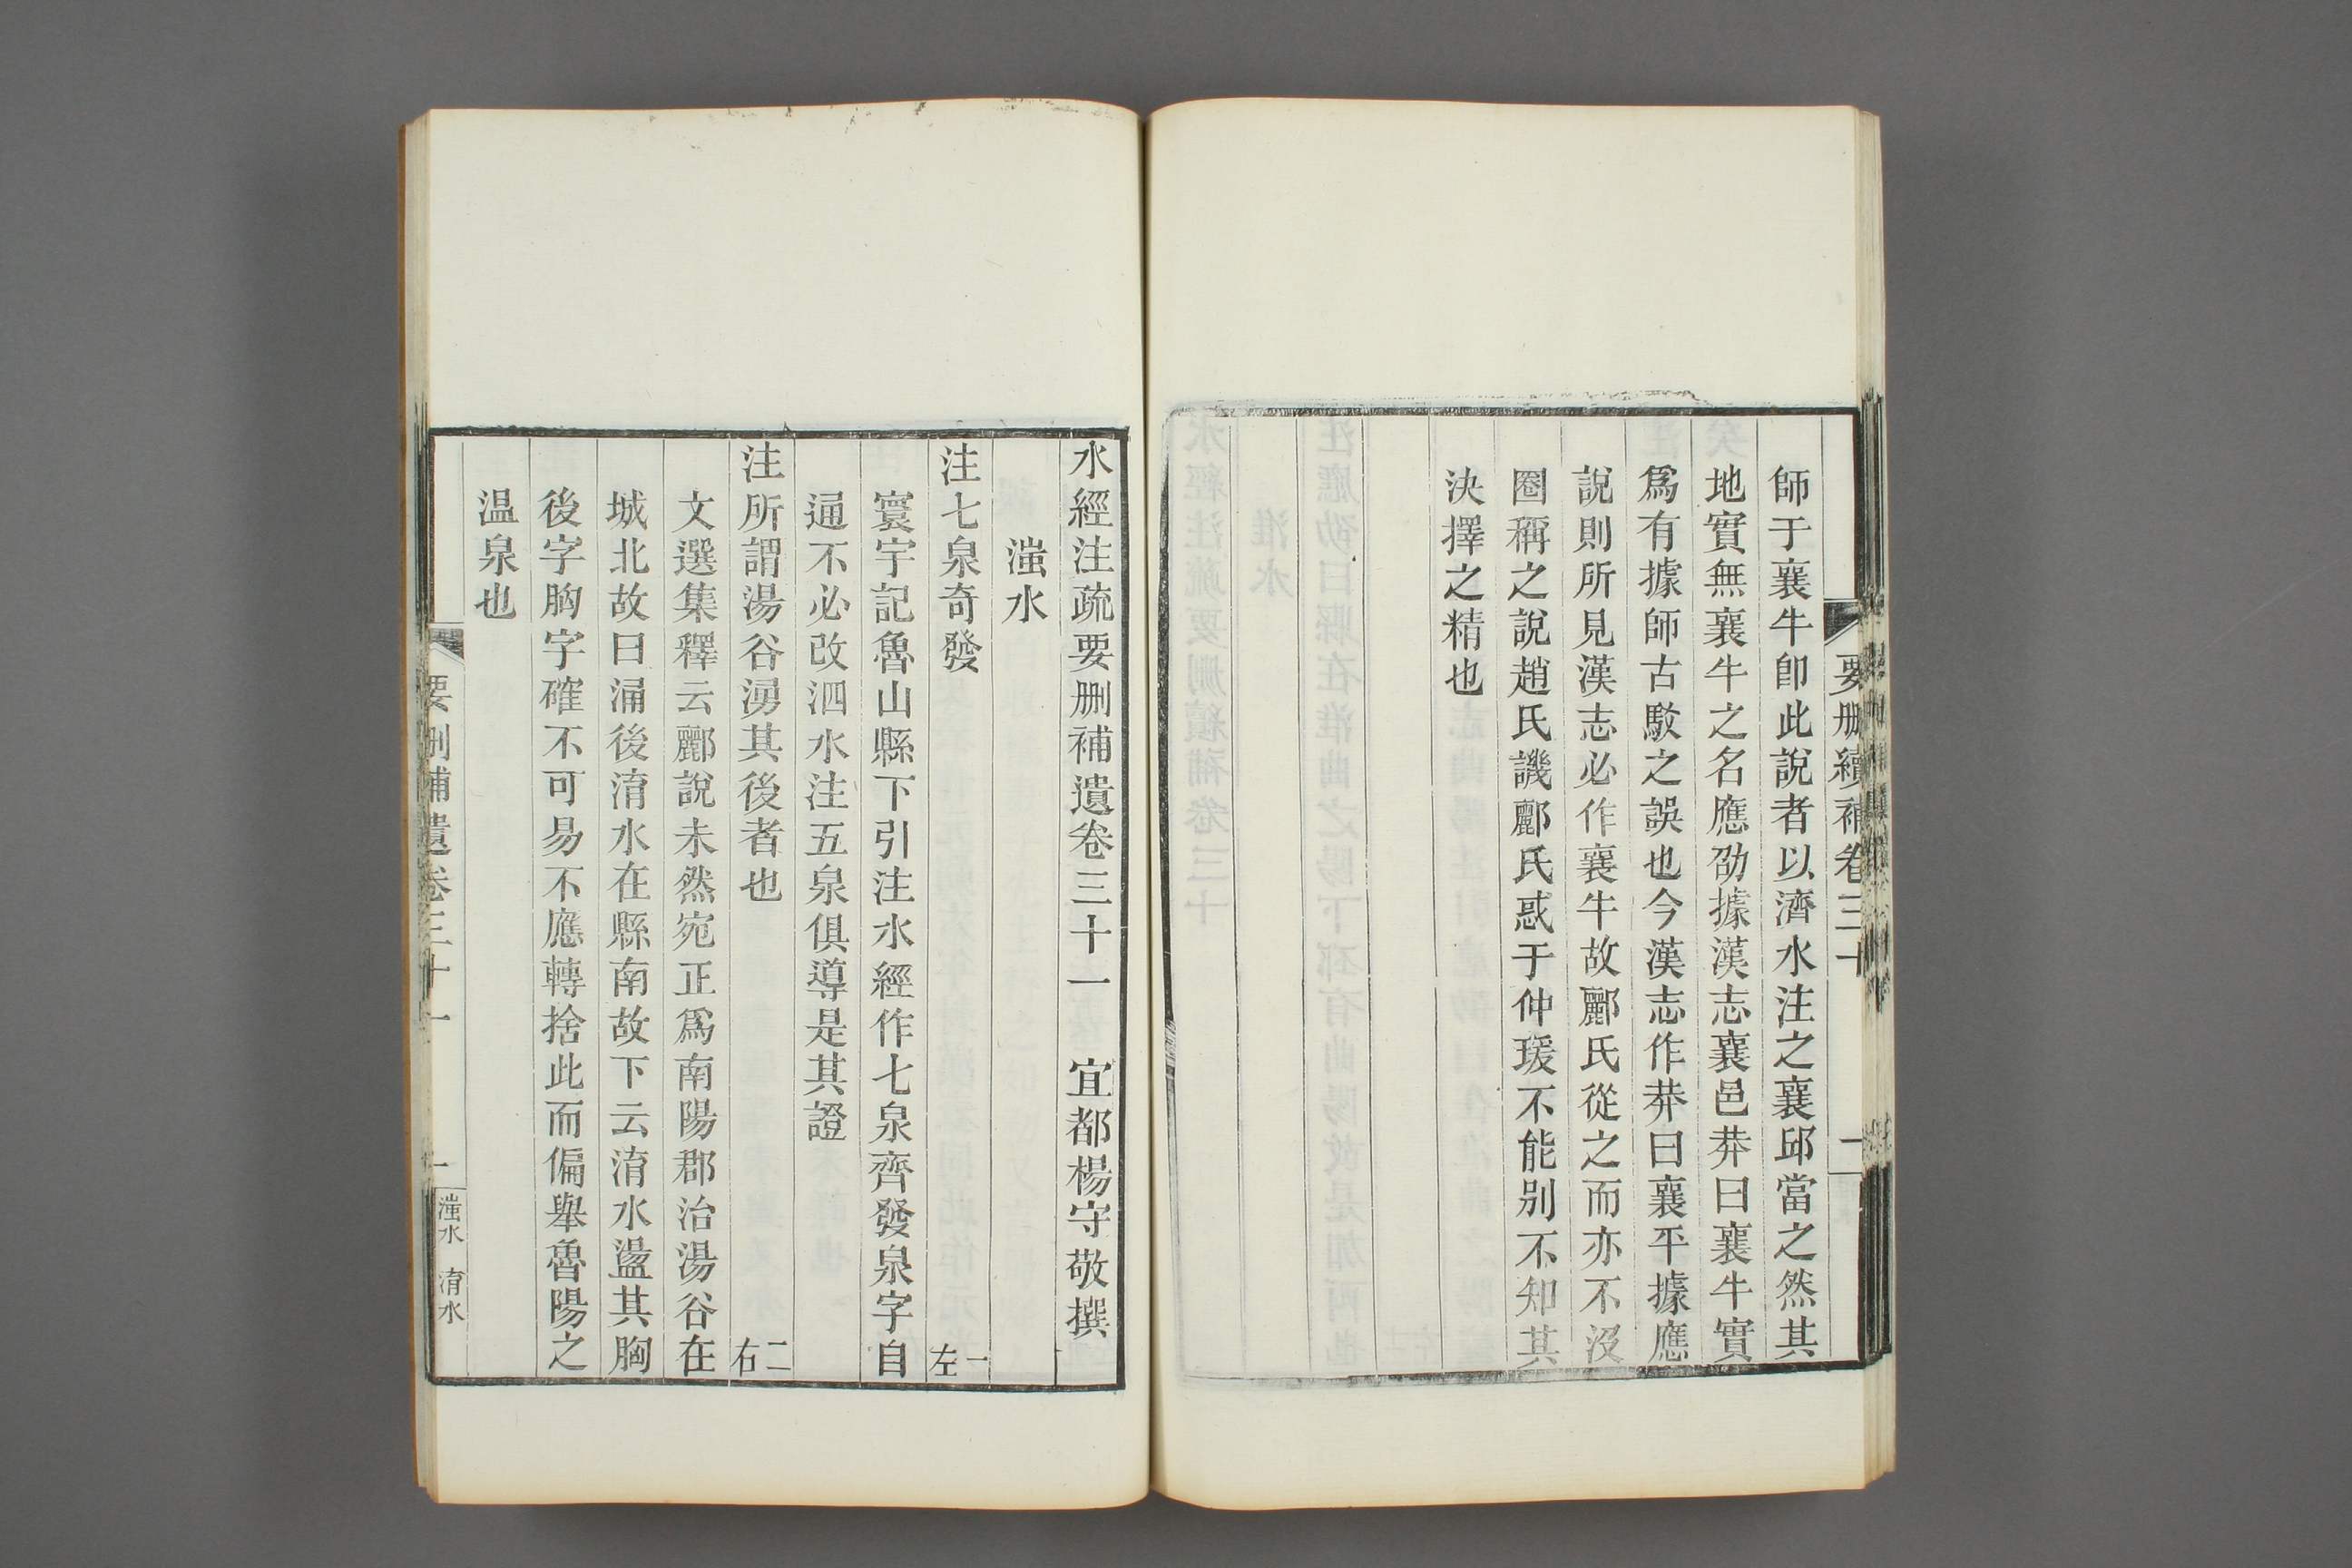 要刪續補卷三十
一
師于襄牛卽此說者以濟水注之襄邱當之然其
地實無襄牛之名應劭據漢志襄邑莽曰襄牛實
爲有據師古駮之誤也今漢志作莽曰襄平據應
說則所見漢志必作襄牛故酈氏從之而亦不沒
圈稱之說趙氏譏酈氏惑于仲瑗不能別不知其
決擇之精也
水經注疏要刪補遺卷三十一　宜都楊守敬撰
滍水
注七泉奇發　一左
寰宇記魯山縣下引注水經作七泉齊發泉字自
通不必改泗水注五泉俱導是其證
注所謂湯谷湧其後者也　二右
文選集釋云酈說未然宛正爲南陽郡治湯谷在
城北故曰涌後淯水在縣南故下云淯水盪其胸
後字胸字確不可易不應轉捨此而偏舉魯陽之
温泉也
要刪補遺卷三十一
一
滍水　淯水